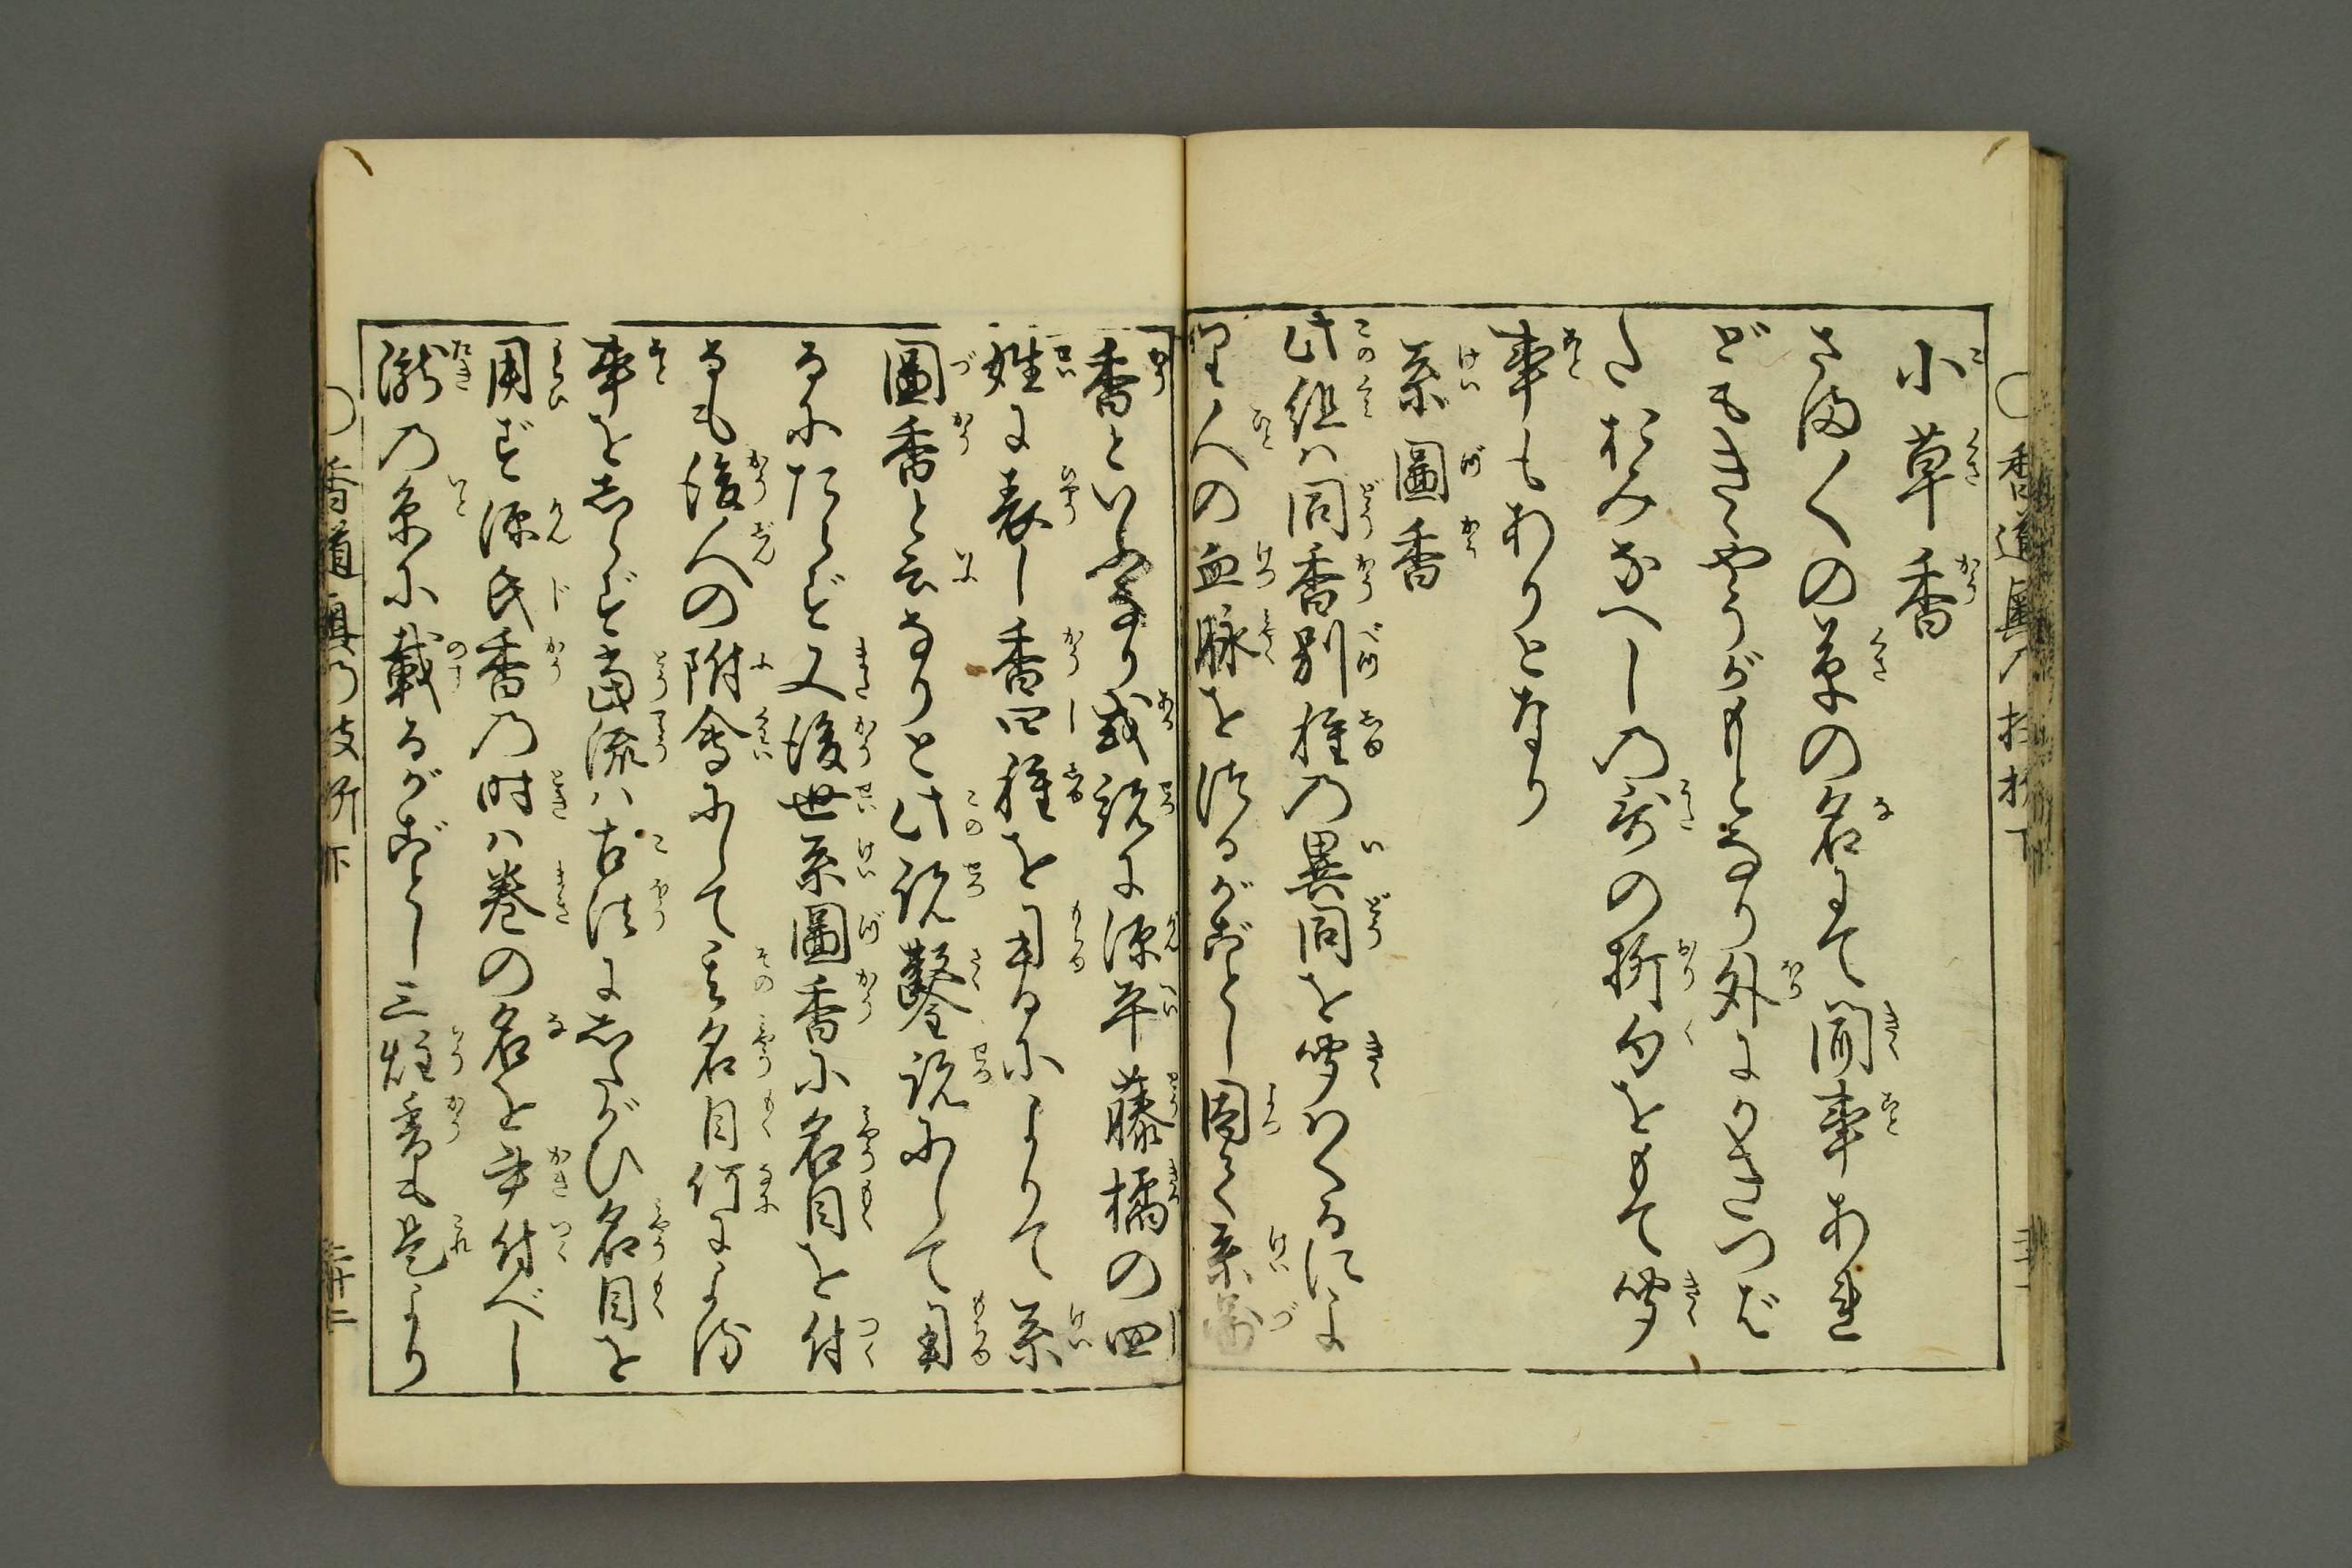 小草香
さま〳〵の草の名にて聞事あれ
どもきゝやうがもとなり外にかきつば
たおみなへしの哥の折句をもて聞
事もありとなり
系圖香
此組ハ同香別種の異同を聞わくるによ
り人の血脉を伝るがごとし因て系圖
香といふなり或説に源平藤橘の四
姓に表し香四種を用るによりて系
圖香と云なりと此説鑿説にして用
るにたらず又後世系圖香に名目を付
るも後人の附會にして其名目何による
事をしらず當流ハ古法にしたがひ名目を
用ず源氏香の时ハ巻の名を書付べし
瀧の糸に載るがごとし三炷香も是より
香道真乃枝折下
二十二